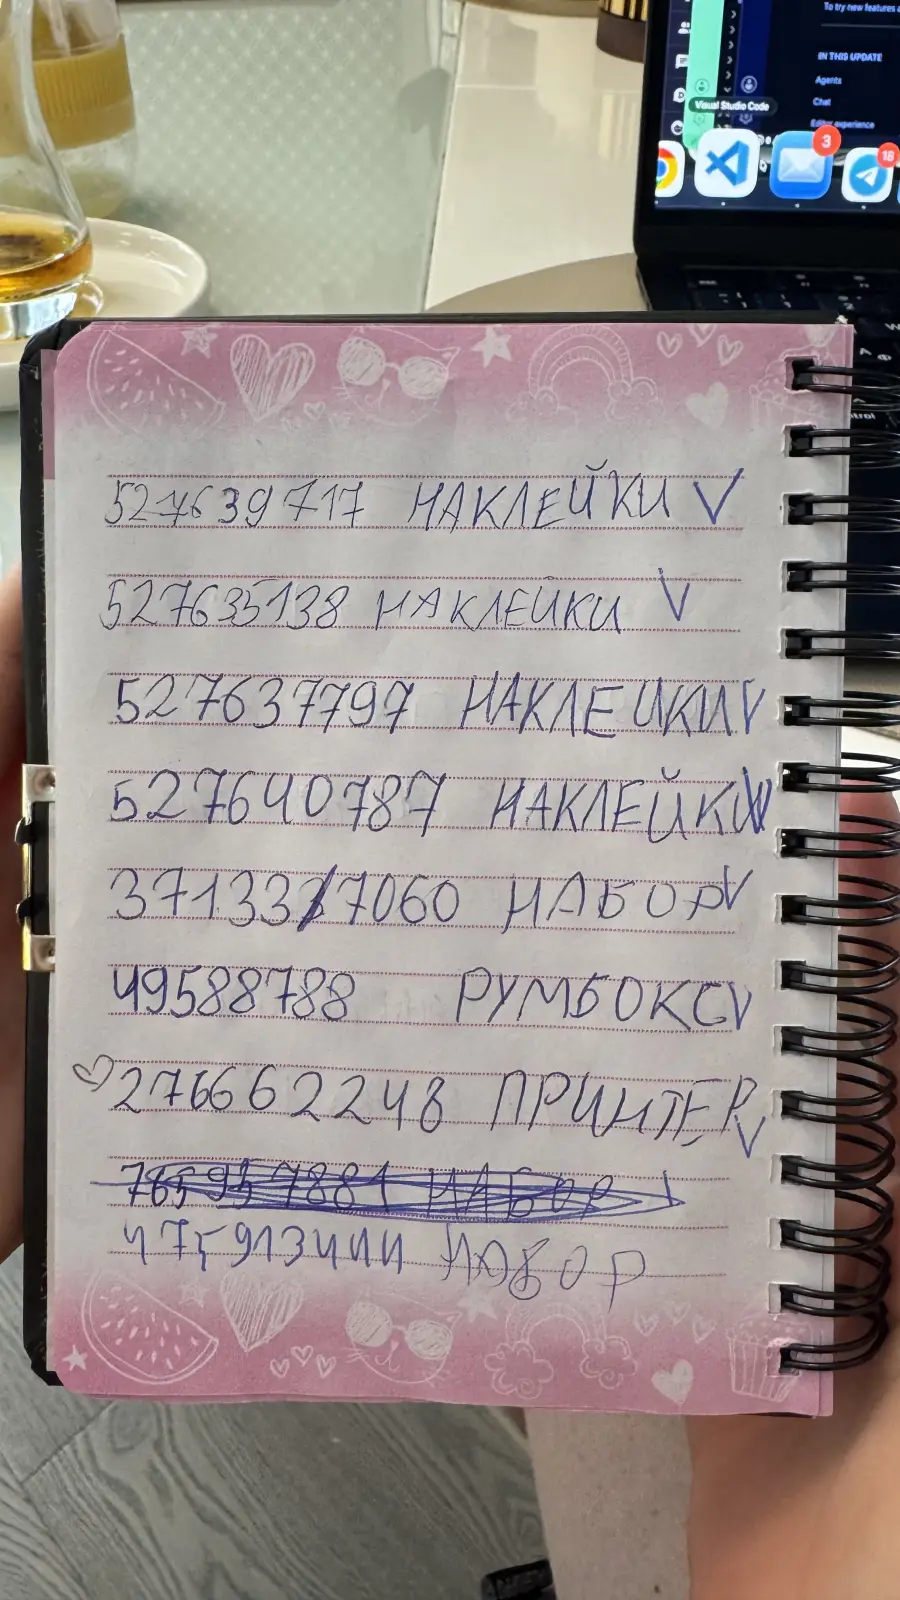 To try new features a
IN THIS UPDATE
Agents
Chat
Editor experience
Visual Studio Code
3
18
527639717 НАКЛЕЙКИ V
527635138 НАКЛЕЙКИ V
527637797 НАКЛЕЙКИ V
527640787 НАКЛЕЙКИ V
371337060 НАБОР V
49588788 РУМБОКС V
276662248 ПРИНТЕР V
НАБОР
НАБОР